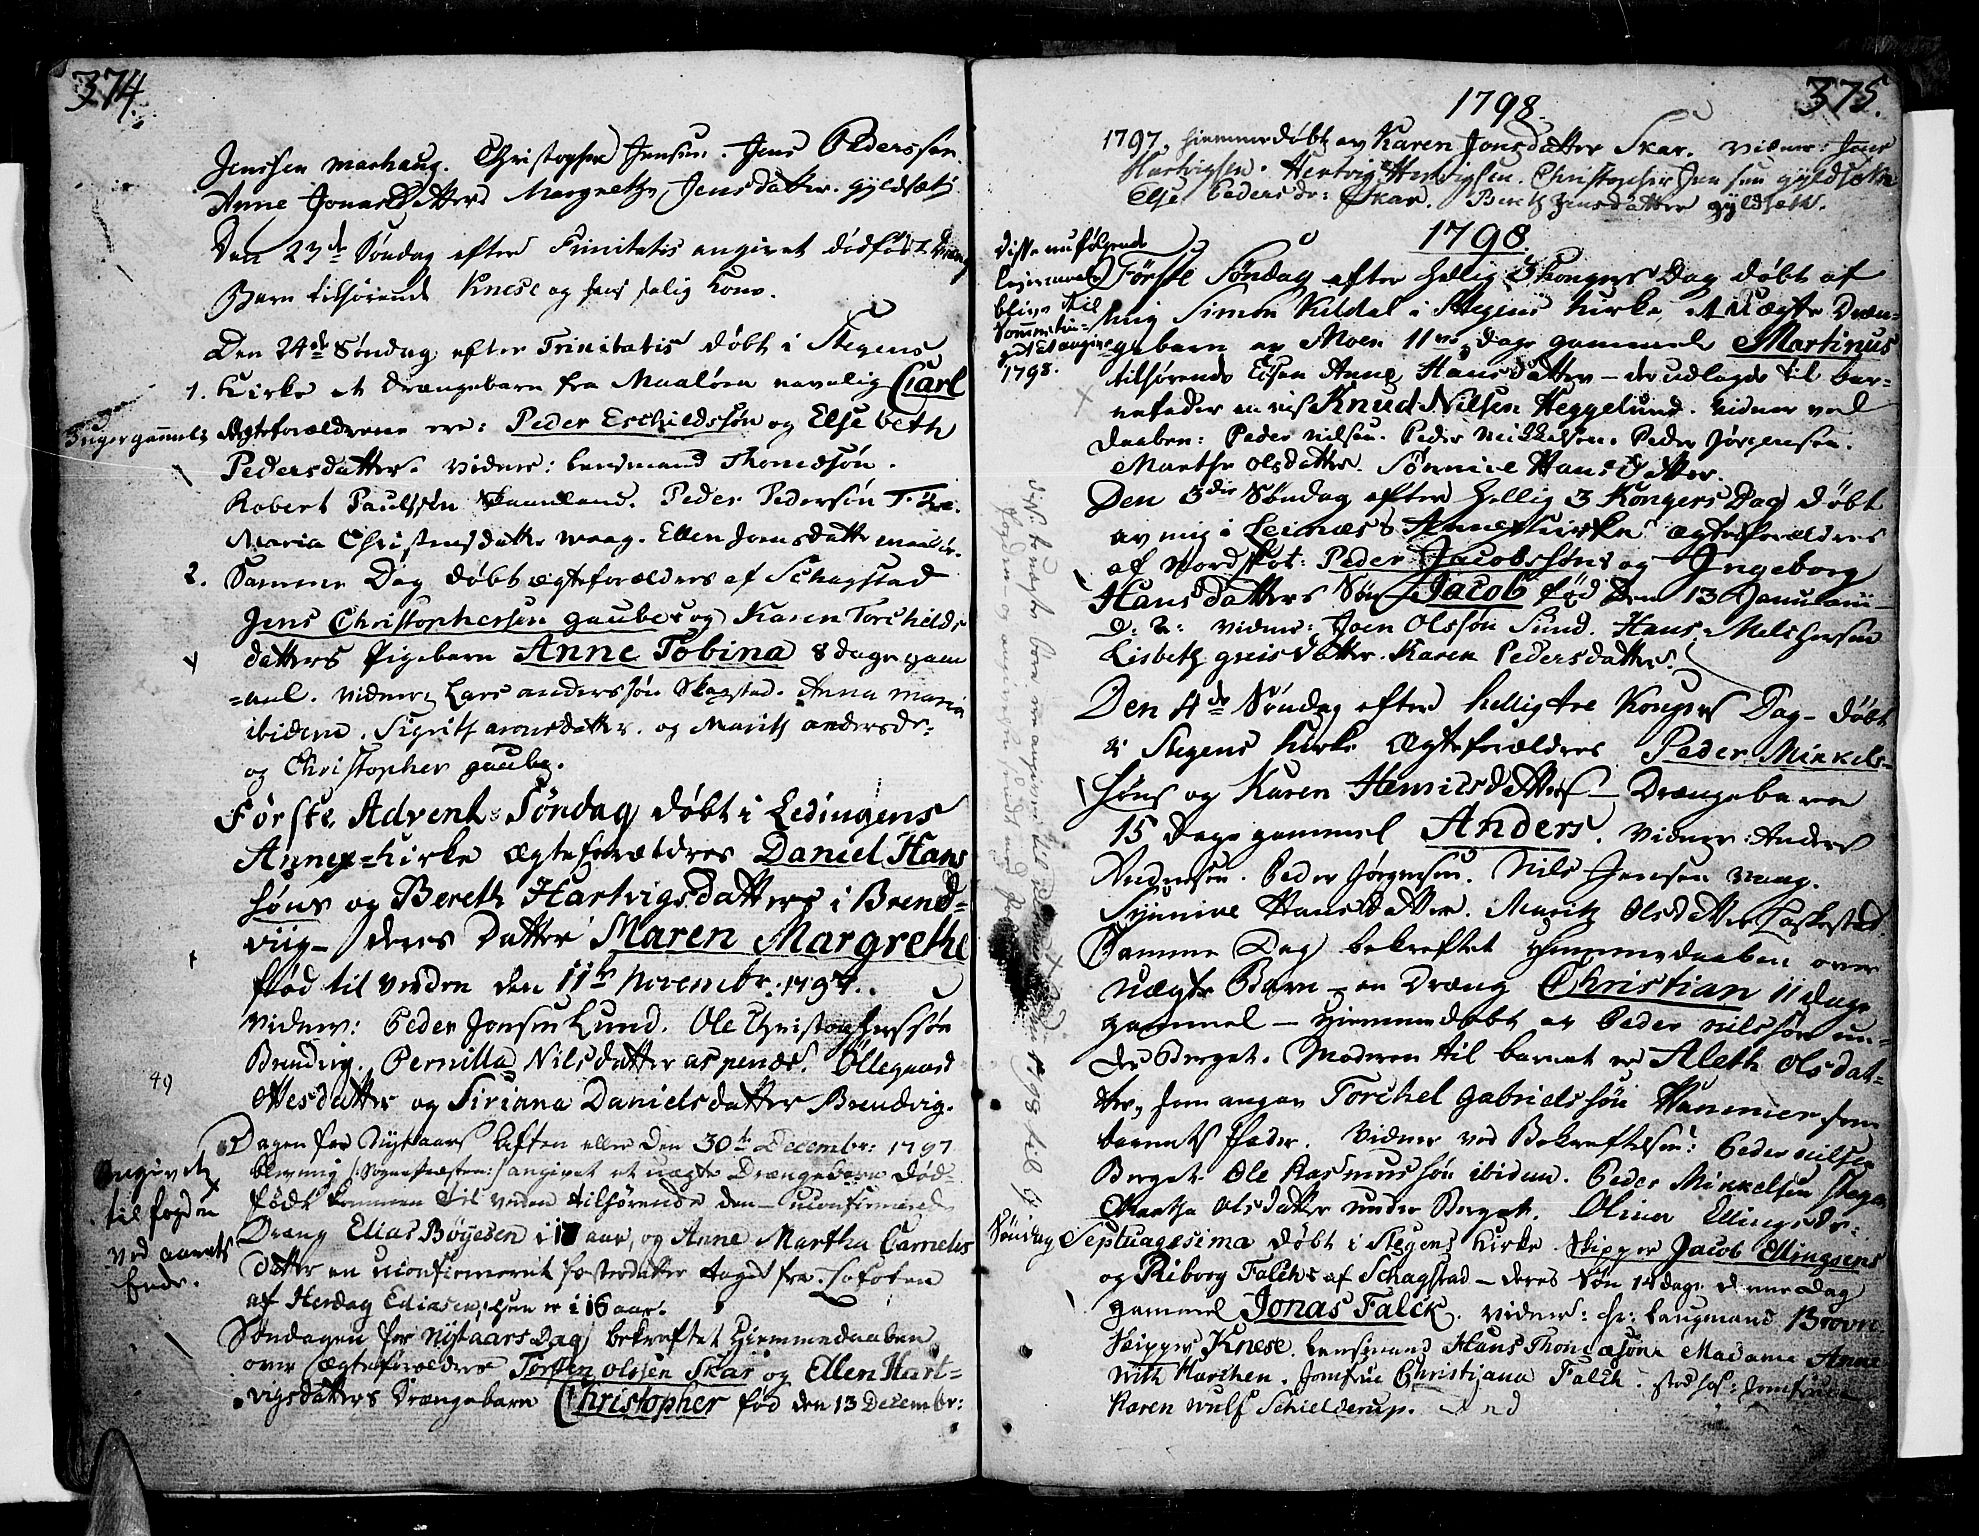 374
Jenssen maehaug. Christopher Jensen. Jens Pederssen.
Anne JonasDatter Margrethe Jensdatter. gyldsæti
Den 23de Søndag efter Trinitatis angivet dødfødt Dreng
Barn tilhørende Knese og hans salig Kone.
Den 24de Søndag efter Trinitatis døbt i Stegens
1. Kirke et drængebarn fra Maaløen navnlig Carl
3 uger gammelt
Ægteforældrene ere: Peder Eschildssøn og Elsebeth
Pedersdatter. Vidner: Lensmand Thomæsøn.
Robert Paulssen Skamland. Peder Pedersøn
Maria Christensdatter waag. Ellen Jonsdatter
2. Samme Dag døbt ægteforældres af Schagstad
Jens Christophersøn gaubes og Karen Torchilds
datters Pigebarn Anne Tobina 8 dage gam
=mel. Vidner: Lars anderssøn Skagstad. Anna maria
ibidem. Sigrith aronsdatter. og Marith andersdr:
og Christopher gaube.
Første Advent-Søndag døbt i Ledingens
Annex=Kirke ægteforældres Daniel Hans
søns og Bereth Hartvigsdatters i Brend=
viig- deres Datter Maren Margrethe
fød til verden den 11te Novembr: 1797.
Vidner: Peder Jonsen Lund. Ole Christopherssøn
Brendvig. Pernilla Nilsdatter aspenæs. Øllegaard
datter og Siriana Danielsdatter Brendvig.
49
Dagen før Nytaars Aften eller den 30te Decembr: 1797
Angivet
til fogden
ved aarets
Ende.
blev mig /:Sognepræsten:/ angivet et uægte Drængebarn død=
født kommen til verden tilhørende den uconfirmered
Dræng Elias Bøyesen i aar, og Anne Martha Cornelis
datter en uconfirmeret fosterdatter taget fra Lofoten
af Herdag Ediasen, hun er i 16 aar.
Søndagen før NytaarsDag bekræftet Hiemmedaaben
over Ægteforældres Torsten olssen Skar og Ellen Hart=
vigsdatters Drængebarn Christopher fød den 13 Decembr:
375.
1798
1797, hiemmedøbt av Karen Jonsdatter Skar. Vidner: Jens
Hartvigsen. Hertvig Hertvigsen. Christopher Jensen gyldsæti
Else Pedersdr: Skar. Bereth Jensdatter gyldsæti.
1798.
Disse nufølgende
Leiermaale
blive til
Sommertin=
get 1798.
Første Søndag efter Hellig 3 Kongers Dag døbt af
mig Simon Kildal i Stegens Kirke, et Uægte Dræn=
gebarn av Moen 11ve dage gammel Martinus
tilhørende Anne Hansdatter - der udlagde til bar=
nefader Knud Nilsen Heggelund. Vidner ved
daaben: Peder nilsen. Peder Mickelsen. Peder Jørgensen.
Marthe olsdatter. Sønnive Hansdatter.
Den 3die Søndag efter Hellig 3 Kongers Dag døbt
av mig i Leinæs Annexkirke ægteforældres
af Nordskot: Peder Jacobssøns og Ingeborg
Hansdatters Søn Jacob fød den 13 Januarii
Vidner: Joen Olssøn Sund. Hans Melchersen
Lisbeth greisdatter. Karen Pedersdatter.
Den 4de Søndag efter hellig tre Kongers Dag- døbt
i Stegens kirke ægteforældres Peder Minkels=
søns og Karen Henricsdatters - Drængebarn
15 Dage gammel Anders. Vidner: Anders
Andersen. Peder Jørgensen. Nils Jensen waag.
Synnive Hansdatter. Marith Olsdatter Laskestad
Samme Dag bekreftet Hiemmedaaben over
uægte Barn - en Dræng Christian 11 dage
gammel - hiemmedøbt av Peder nilssøn un=
der Berget. Moderen til barnet er Aleth olsdat=
ter, som angav Torchel gabrielssøn Hammer som
barnets Fader. Vidner ved Bekreftelsen: Peder nilsen
Berget. Ole Rasmussøn ibidem. Peder Minkelsen
Martha olsdatter under Berget. Olina Ellingsdr:
Søndag Septuagesima døbt i Stegens kirke Skipper Jacob Ellingsens
og Riborg Falchs af Schagstad - deres Søn 14 dage denne Dag
gammel Jonas Falck. Vidner: Hr: Laugmand
Skipper Knese. Lensmand Hans Thomæsøn. Madame Anne
With Karchen. Jomfrue Christiana Falck. stod hos: Jomfrue
Karen Wulf Schielderup.